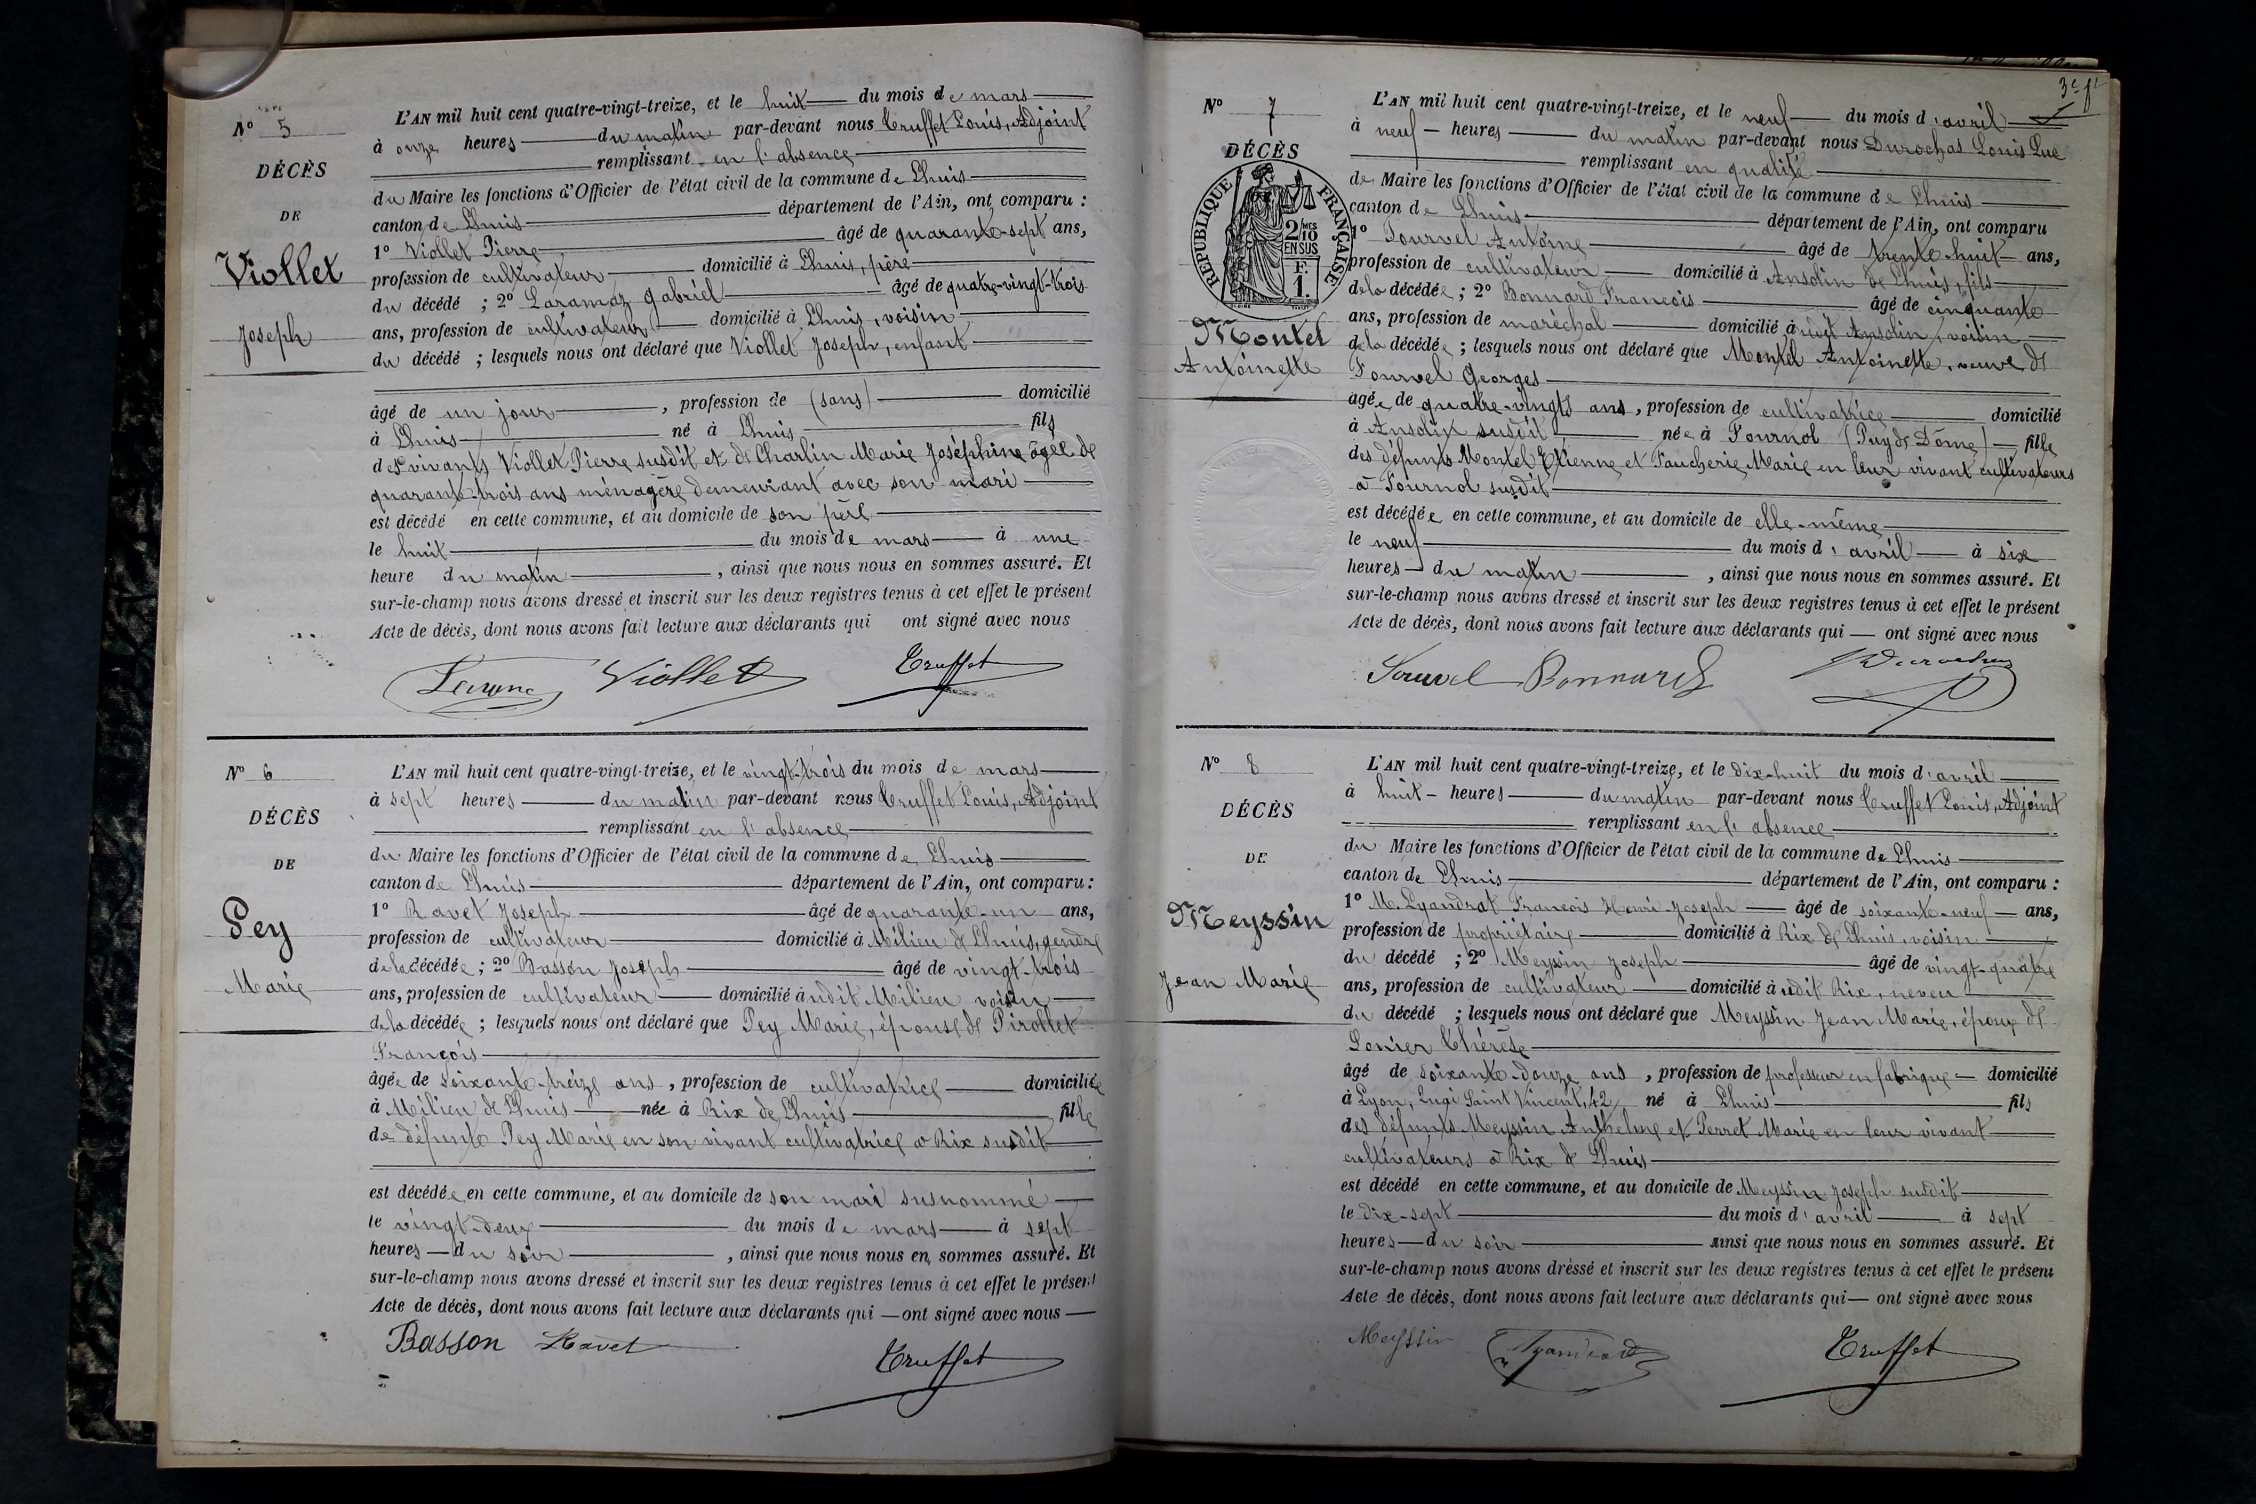 N° 5
DÉCÈS
DE
Viollet
Joseph
L'AN mil huit cent quatre-vingt-treize, et le huit du mois de mars
à onze heures du matin par-devant nous Truffet Louis, Adjoint
remplissant en l'absence
du Maire les fonctions d'Officier de l'état civil de la commune de Lhuis
canton de Lhuis département de l'Ain, ont comparu :
1° Viollet Pierre âgé de quarante-sept ans,
profession de cultivateur domicilié à Lhuis, père
du décédé ; 2° Laramaz Gabriel âgé de quatre-vingt-trois
ans, profession de cultivateur domicilié à Lhuis, voisin
du décédé ; lesquels nous ont déclaré que Viollet Joseph, enfant
âgé de un jour , profession de (sans) domicilié
à Lhuis né à Lhuis fils
des vivants Viollet Pierre susdit et de Charlin Marie Joséphine âgée de
quarante-trois ans ménagère demeurant avec son mari
est décédé en cette commune, et au domicile de son père
le huit du mois de mars à une
heure du matin , ainsi que nous nous en sommes assuré. Et
sur-le-champ nous avons dressé et inscrit sur les deux registres tenus à cet effet le présent
Acte de décès, dont nous avons fait lecture aux déclarants qui ont signé avec nous
Viollet Truffet
N° 6
DÉCÈS
DE
Pey
Marie
L'AN mil huit cent quatre-vingt-treize, et le vingt-trois du mois de mars
à sept heures du matin par-devant nous Truffet Louis, Adjoint
remplissant en l'absence
du Maire les fonctions d'Officier de l'état civil de la commune de Lhuis
canton de Lhuis département de l'Ain, ont comparu :
1° Ravet Joseph âgé de quarante-un ans,
profession de cultivateur domicilié à Milieu de Lhuis, gendre
de la décédée ; 2° Basson Joseph âgé de vingt-trois
ans, profession de cultivateur domicilié à udit Milieu voisin
de la décédée ; lesquels nous ont déclaré que Pey Marie, épouse de Pirollet
François
âgée de soixante-treize ans , profession de cultivatrice domiciliée
à Milieu de Lhuis née à Rix de Lhuis fille
de défunte Pey Marie en son vivant cultivatrice à Rix susdit
est décédée en cette commune, et au domicile de son mari susnommé
le vingt-deux du mois de mars à sept
heures du soir , ainsi que nous nous en sommes assuré. Et
sur-le-champ nous avons dressé et inscrit sur les deux registres tenus à cet effet le présent
Acte de décès, dont nous avons fait lecture aux déclarants qui — ont signé avec nous —
Basson Ravet Truffet
3e ft
N° 7
DÉCÈS
RÉPUBLIQUE FRANÇAISE
2/10 EN SUS
F. 1.
Montel
Antoinette
L'AN mil huit cent quatre-vingt-treize, et le neuf du mois d'avril
à neuf heures du matin par-devant nous Durochas Louis Luc
remplissant en qualité
de Maire les fonctions d'Officier de l'état civil de la commune de Lhuis
canton de Lhuis département de l'Ain, ont comparu
1° Fourvel Antoine âgé de trente-huit ans,
profession de cultivateur domicilié à Ansolin de Lhuis, fils
de la décédée ; 2° Bonnard François âgé de cinquante
ans, profession de maréchal domicilié à udit Ansolin, voisin
de la décédée ; lesquels nous ont déclaré que Montel Antoinette, veuve de
Fourvel Georges
âgée de quatre-vingts ans , profession de cultivatrice domicilié
à Ansolin susdit née à Fournol (Puy de Dôme) fille
des défunts Montel Etienne et Faucherie Marie en leur vivant cultivateurs
à Fournol susdit
est décédée en cette commune, et au domicile de elle-même
le neuf du mois d'avril à six
heures du matin , ainsi que nous nous en sommes assuré. Et
sur-le-champ nous avons dressé et inscrit sur les deux registres tenus à cet effet le présent
Acte de décès, dont nous avons fait lecture aux déclarants qui — ont signé avec nous
Fourvel Bonnard
N° 8
DÉCÈS
DE
Meyssin
Jean Marie
L'AN mil huit cent quatre-vingt-treize, et le dix-huit du mois d'avril
à huit heures du matin par-devant nous Truffet Louis, Adjoint
remplissant en l'absence
du Maire les fonctions d'Officier de l'état civil de la commune de Lhuis
canton de Lhuis département de l'Ain, ont comparu :
1° M. Lyandrat François Henri Joseph âgé de soixante-neuf ans,
profession de propriétaire domicilié à Rix de Lhuis, voisin
du décédé ; 2° Meyssin Joseph âgé de vingt-quatre
ans, profession de cultivateur domicilié à udit Rix, neveu
du décédé ; lesquels nous ont déclaré que Meyssin Jean Marie, époux de
Thérèse
âgé de soixante-douze ans , profession de professeur en fabrique domicilié
à Lyon, Saint Vincent, 42, né à Lhuis fils
des défunts Meyssin Anthelme et Perret Marie en leur vivant
cultivateurs à Rix de Lhuis
est décédé en cette commune, et au domicile de Meyssin Joseph susdit
le dix-sept du mois d'avril à sept
heures du soir ainsi que nous nous en sommes assuré. Et
sur-le-champ nous avons dressé et inscrit sur les deux registres tenus à cet effet le présent
Acte de décès, dont nous avons fait lecture aux déclarants qui — ont signé avec nous
Meyssin Truffet